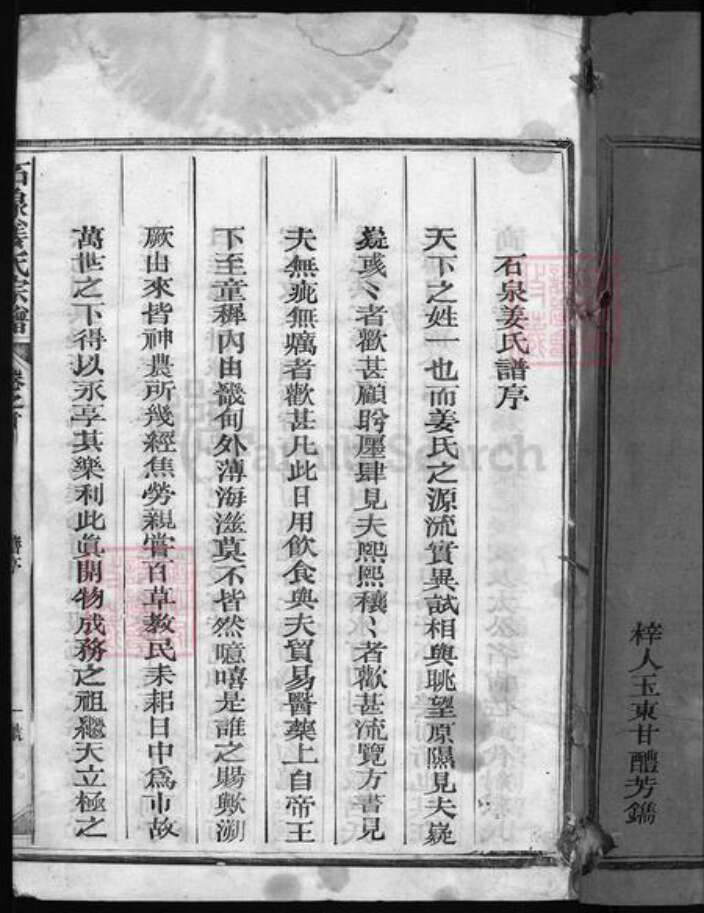 梓人玉東甘醴芳鐫
石泉姜氏譜序
天下之姓一也而姜氏之源流實異試相與眺望原隰見夫嶷
嶷彧〻者歡甚顧盼廛肆見夫熙熙穰〻者歡甚流覽方書見
夫無疵無癘者歡甚凡此日用飲食與夫貿易醫藥上自帝王
下至童稺內由畿甸外薄海滋莫不皆然噫嘻是誰之賜歟溯
厥由來皆神農所幾經焦勞親嘗百草教民耒耜日中為市故
萬世之下得以永享其樂利此眞開物成務之祖繼天立極之
石泉姜氏宗譜 卷之首 譜序 一
FamilySearch